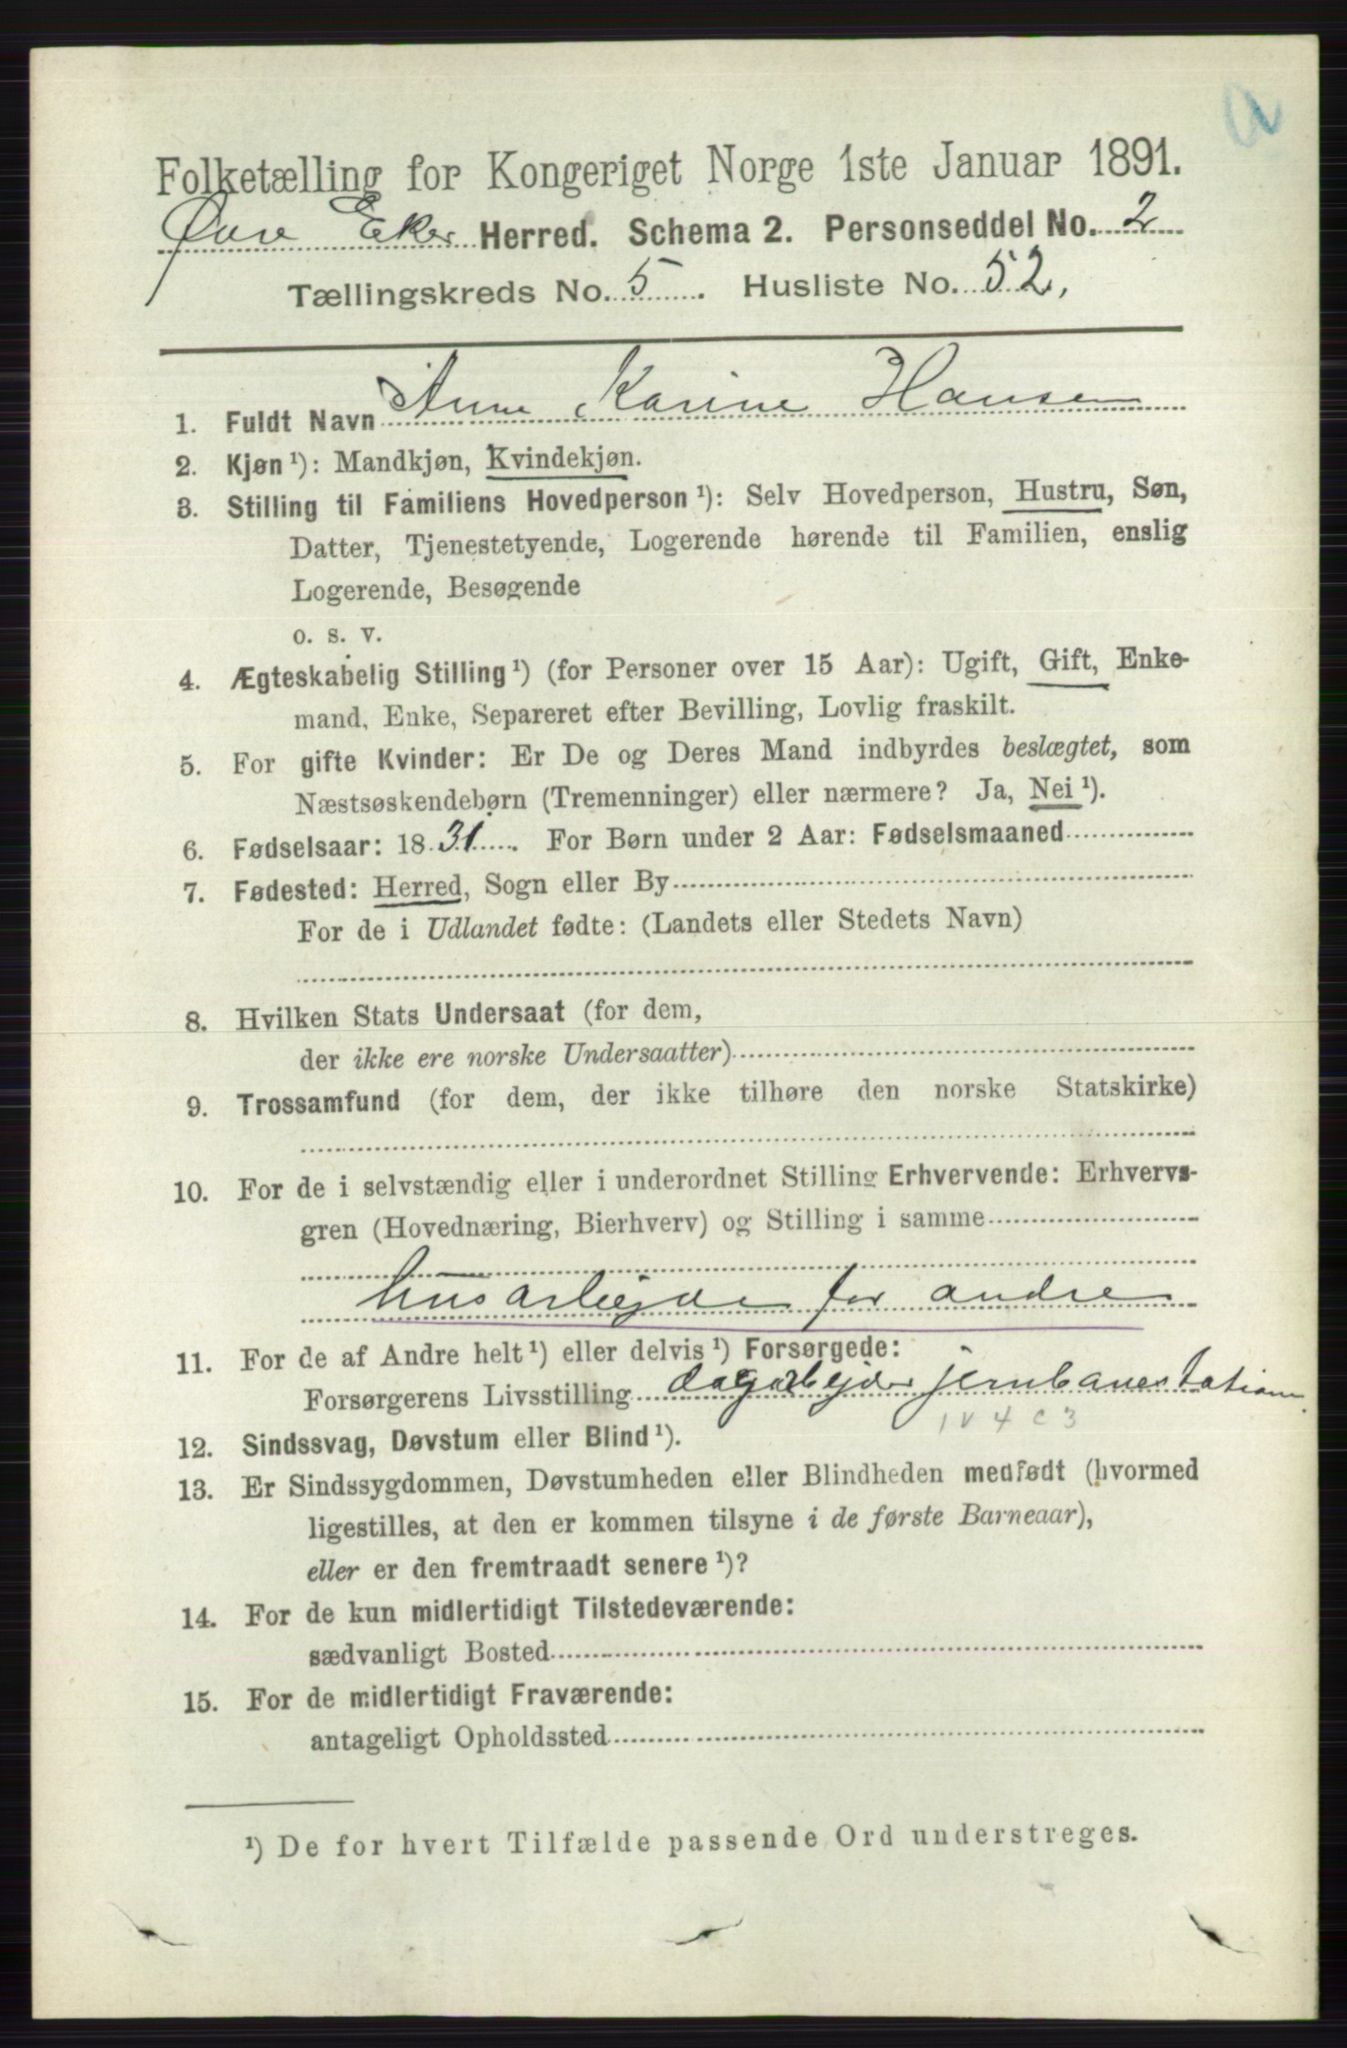 Folketælling for Kongeriget Norge 1ste Januar 1891.
Øvre Eker Herred. Schema 2. Personseddel No. 2
Tællingskreds No. 5. Husliste No. 52.
1. Fuldt Navn Anne Karine Hansen
2. Kjøn ¹): Mandkjøn, Kvindekjøn.
3. Stilling til Familiens Hovedperson ¹): Selv Hovedperson, Hustru, Søn,
Datter, Tjenestetyende, Logerende hørende til Familien, enslig
Logerende, Besøgende
o. s. v.
4. Ægteskabelig Stilling ¹) (for Personer over 15 Aar): Ugift, Gift, Enke-
mand, Enke, Separeret efter Bevilling, Lovlig fraskilt.
5. For gifte Kvinder: Er De og Deres Mand indbyrdes beslægtet, som
Næstsøskendebørn (Tremenninger) eller nærmere? Ja, Nei ¹).
6. Fødselsaar: 1831. For Børn under 2 Aar: Fødselsmaaned
7. Fødested: Herred, Sogn eller By
For de i Udlandet fødte: (Landets eller Stedets Navn)
8. Hvilken Stats Undersaat (for dem,
der ikke ere norske Undersaatter)
9. Trossamfund (for dem, der ikke tilhøre den norske Statskirke)
10. For de i selvstændig eller i underordnet Stilling Erhvervende: Erhvervs-
gren (Hovednæring, Bierhverv) og Stilling i samme
husarbejde for andre
11. For de af Andre helt ¹) eller delvis ¹) Forsørgede:
Forsørgerens Livsstilling dagarbejder jernbanestation
1 V 4 C 3
12. Sindssvag, Døvstum eller Blind ¹).
13. Er Sindssygdommen, Døvstumheden eller Blindheden medfødt (hvormed
ligestilles, at den er kommen tilsyne i de første Barneaar),
eller er den fremtraadt senere ¹)?
14. For de kun midlertidigt Tilstedeværende:
sædvanligt Bosted
15. For de midlertidigt Fraværende:
antageligt Opholdssted
¹) De for hvert Tilfælde passende Ord understreges.